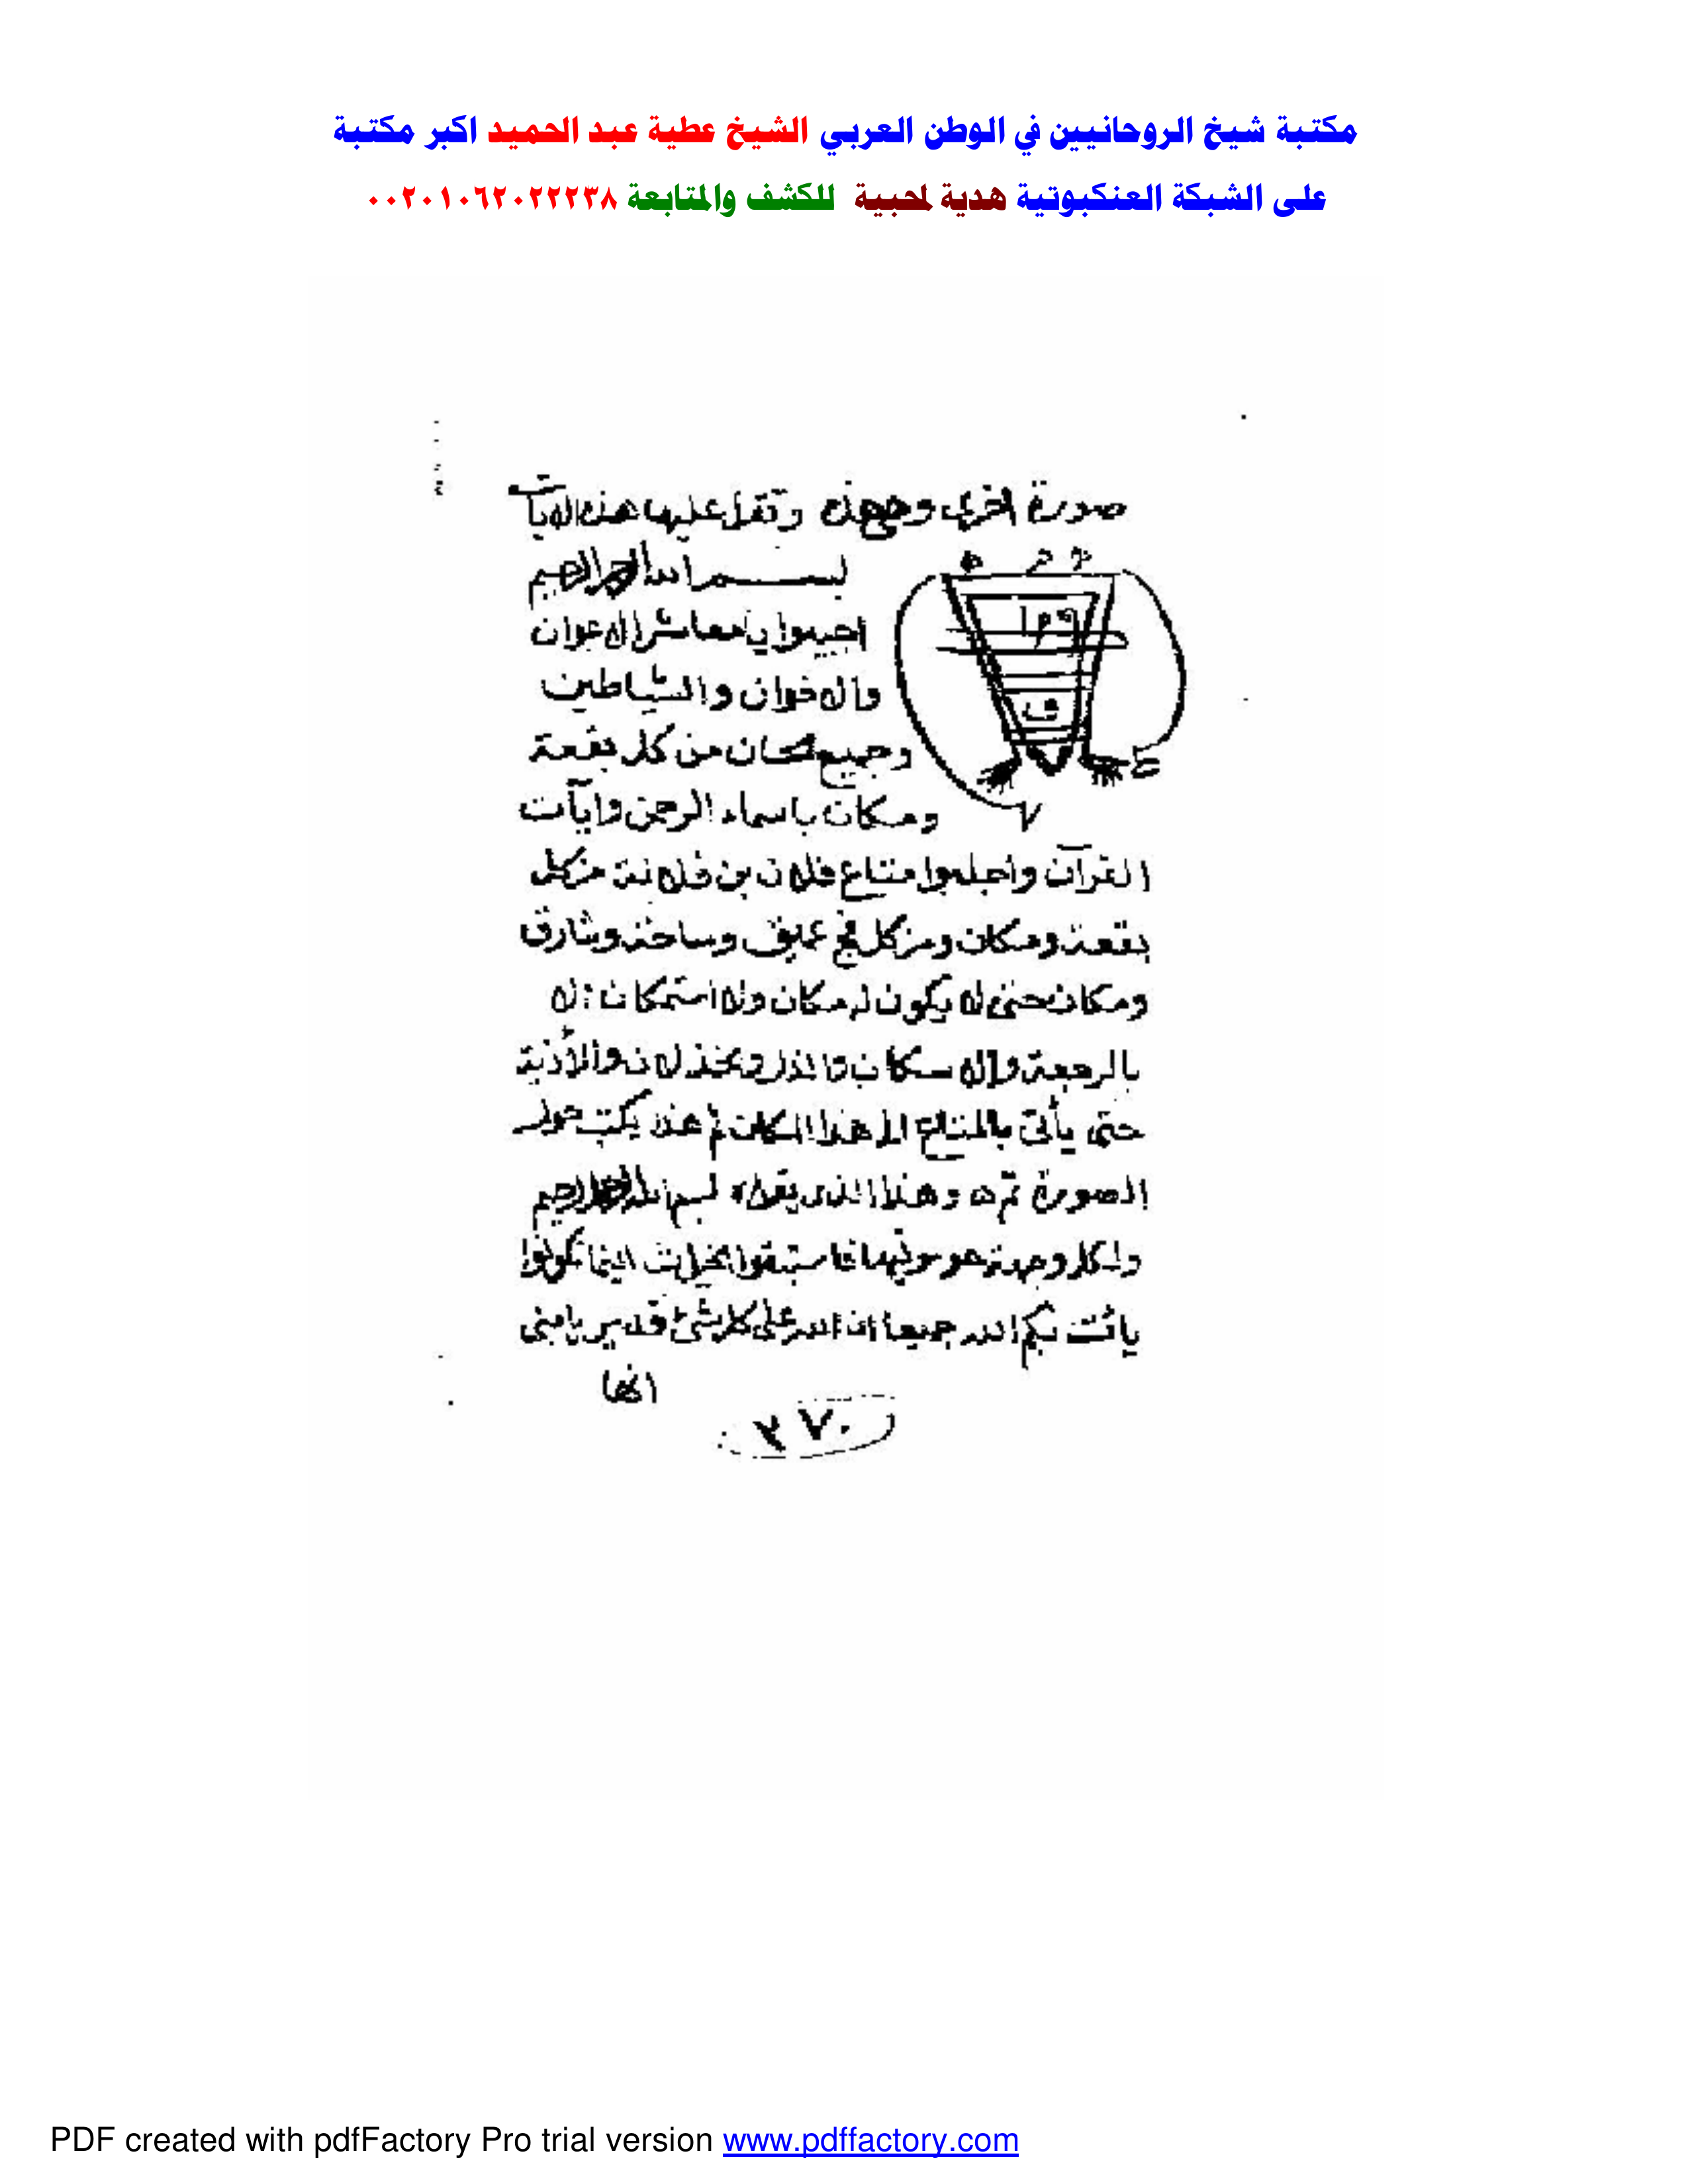 مكتبة شيخ الروحانيين في الوطن العربي الشيخ عطية عبد الحميد اكبر مكتبة
على الشبكة العنكبوتية هدية لمحبية للكشف والمتابعة ٠٠٢٠١٠٦٢٠٢٢٢٣٨
صورة اخرى وهى هذه وتقرا عليها هذه الايات
بسم الله الرحمن الرحيم
اجيبوا يا معاشر الاعوان
والاخوان والشياطين
وجميع من كل بقعة
ومكان باسماء الرحمن وايآت
القرآن واجلبوا متاع فلان بن فلانة من كل
بقعة ومكان ومن كل فج عميق وساحة وشارق
ومكان حتى لا يكون له مكان ولا استمكان الا
بالرجعة والاسكان والأذية
حتى يأتى بالمتاع الى هذا المكان يكتب حول
الصورة تمت وهذا الذى يقراء بسم الله الرحمن الرحيم
ولكل وجهة هو موليها فاستبقوا الخيرات اينما تكونوا
يائت بكم الله جميعا ان الله على كل شئ قدير يا بنى
انها
٢٧٠
PDF created with pdfFactory Pro trial version www.pdffactory.com